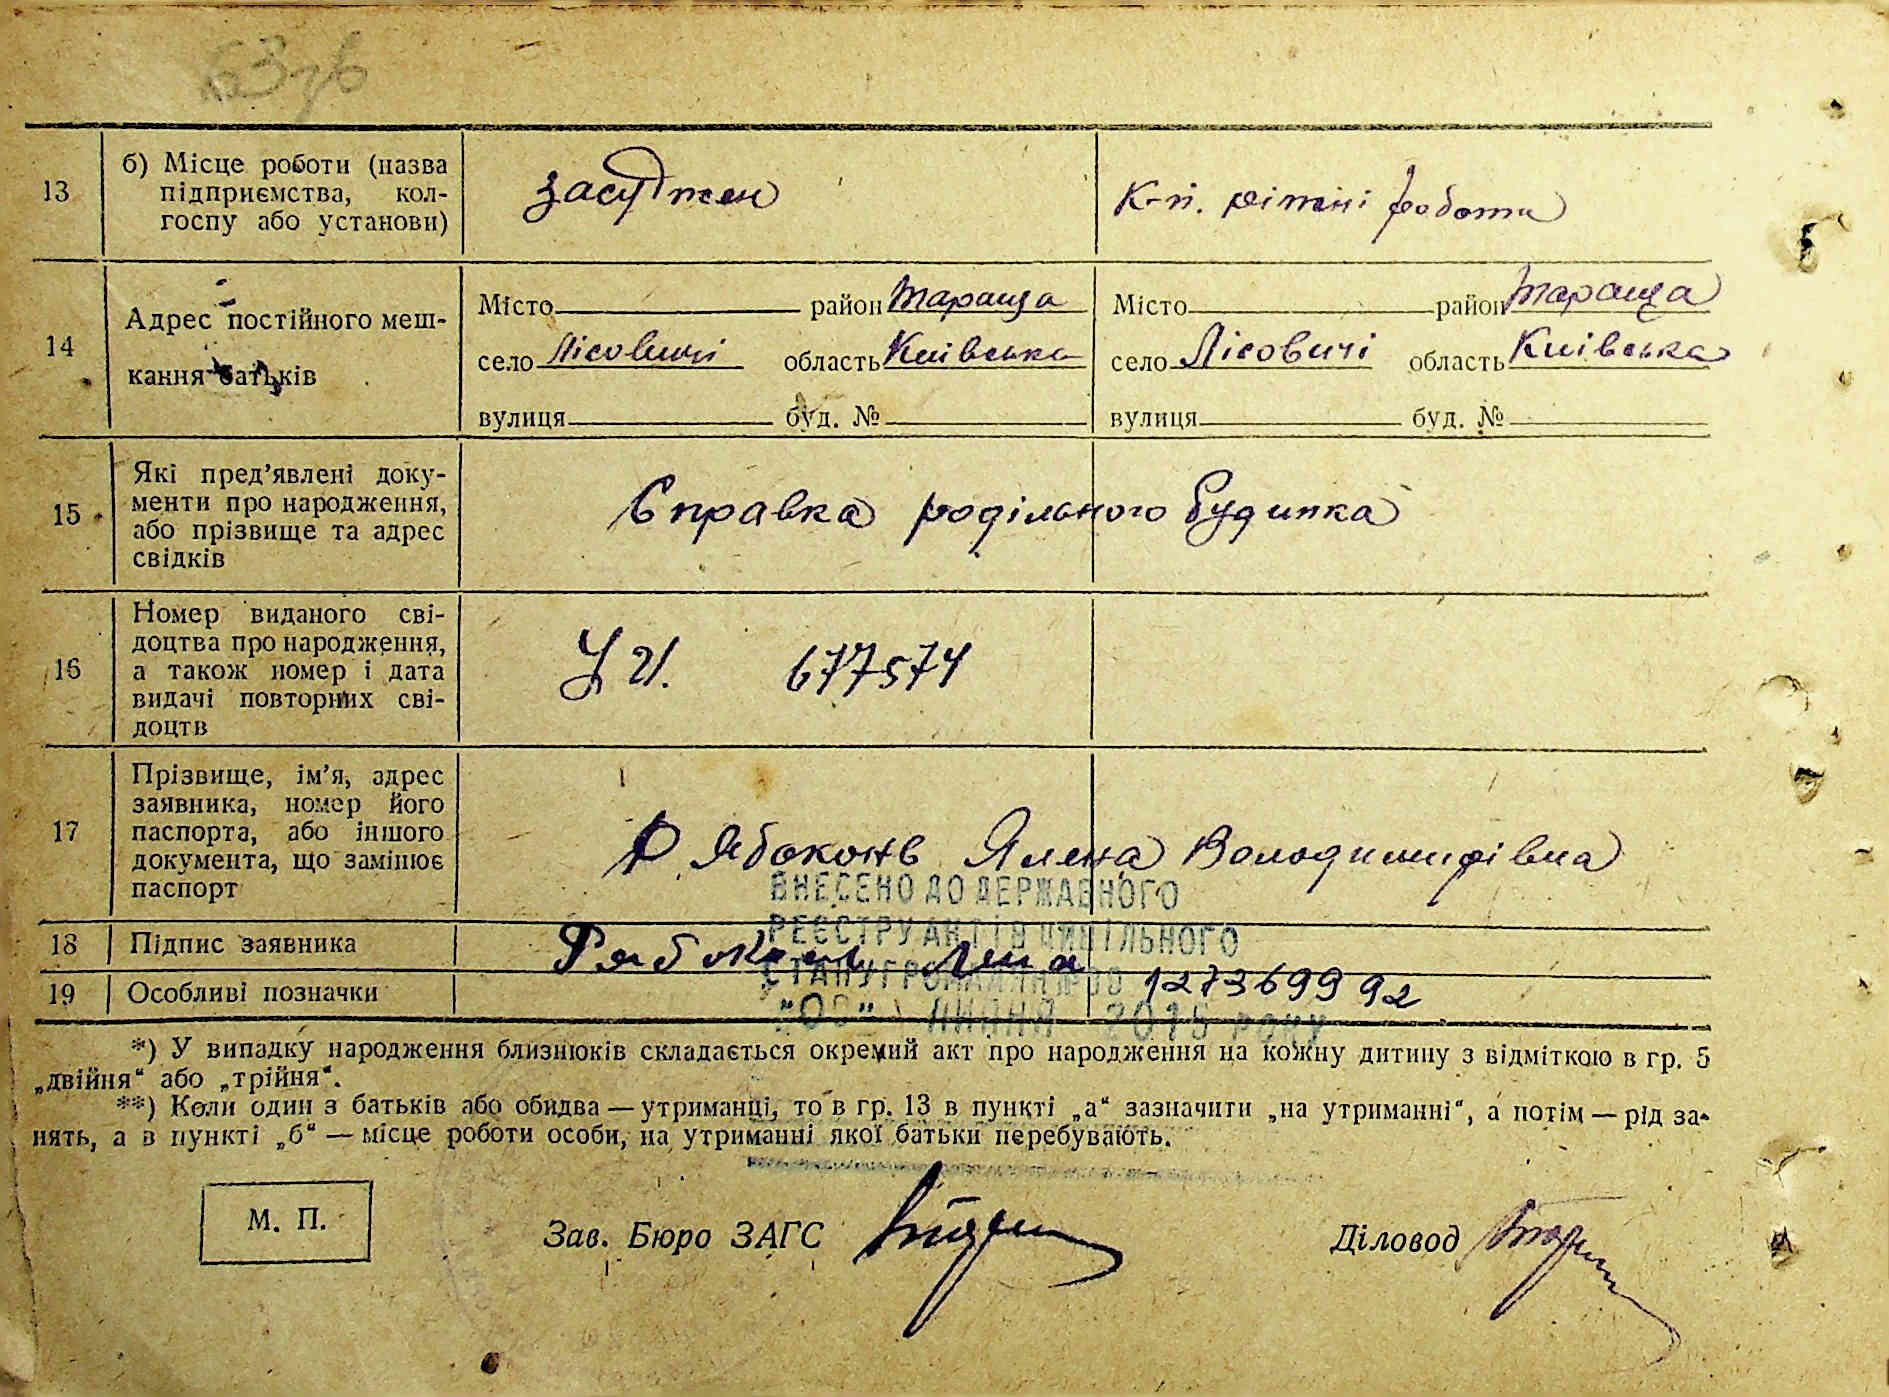 13
б) Місце роботи (назва
підприємства, кол-
госпу або установи)
засуджен
к-п. ріжні роботи
14
Адрес постійного меш-
кання батьків
Місто район Тараща
село Лісовичі область Київська
вулиця буд. №
Місто район Тараща
село Лісовичі область Київська
вулиця буд. №
15
Які пред'явлені доку-
менти про народження,
або прізвище та адрес
свідків
Справка родільного будинка
16
Номер виданого сві-
доцтва про народження,
а також номер і дата
видачі повторних сві-
доцтв
677574
17
Прізвище, ім'я, адрес
заявника, номер його
паспорта, або іншого
документа, що замінює
паспорт
Рябоконь Ялена Володимирівна
ВНЕСЕНО ДО ДЕРЖАВНОГО
РЕЄСТРУ АКТІВ ЦИВІЛЬНОГО
СТАНУ ГРОМАДЯН
18
Підпис заявника
Рябоконь
19
Особливі позначки
12736999 92
ЛИПНЯ 2015 року
*) У випадку народження близнюків складається окремий акт про народження на кожну дитину з відміткою в гр. 5
„двійня“ або „трійня“.
**) Коли один з батьків або обидва — утриманці, то в гр. 13 в пункті „а“ зазначити „на утриманні“, а потім — рід за-
нять, а в пункті „б“ — місце роботи особи, на утриманні якої батьки перебувають.
М. П.
Зав. Бюро ЗАГС
Діловод